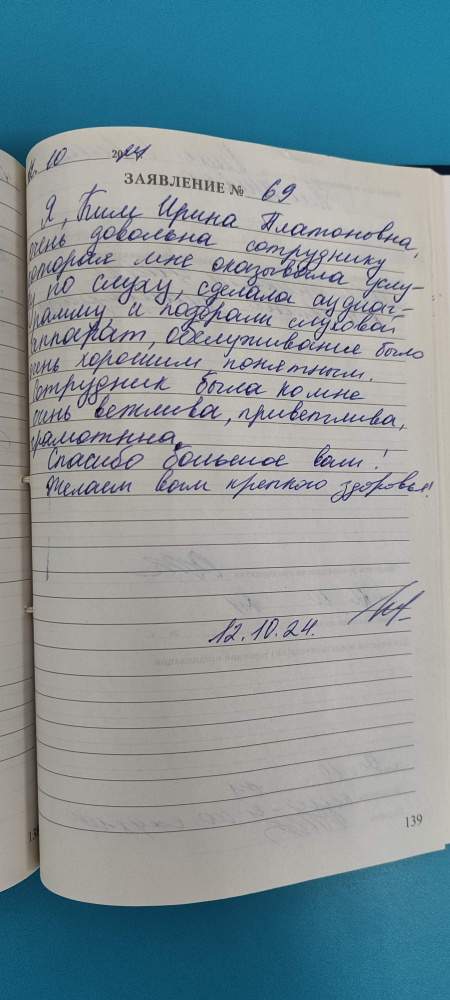 10 2024
ЗАЯВЛЕНИЕ № 69
Я, Ким Ирина Платоновна,
очень довольна сотруднику
которая мне оказывала услу-
гу по слуху, сделала аудиог-
рамму, и подобрали слуховой
аппарат, обслуживание было
очень хорошим понятным.
Сотрудник была ко мне
очень вежлива, приветлива,
грамотна.
Спасибо большое вам!
Желаем вам крепкого здоровья!
12.10.24.
139